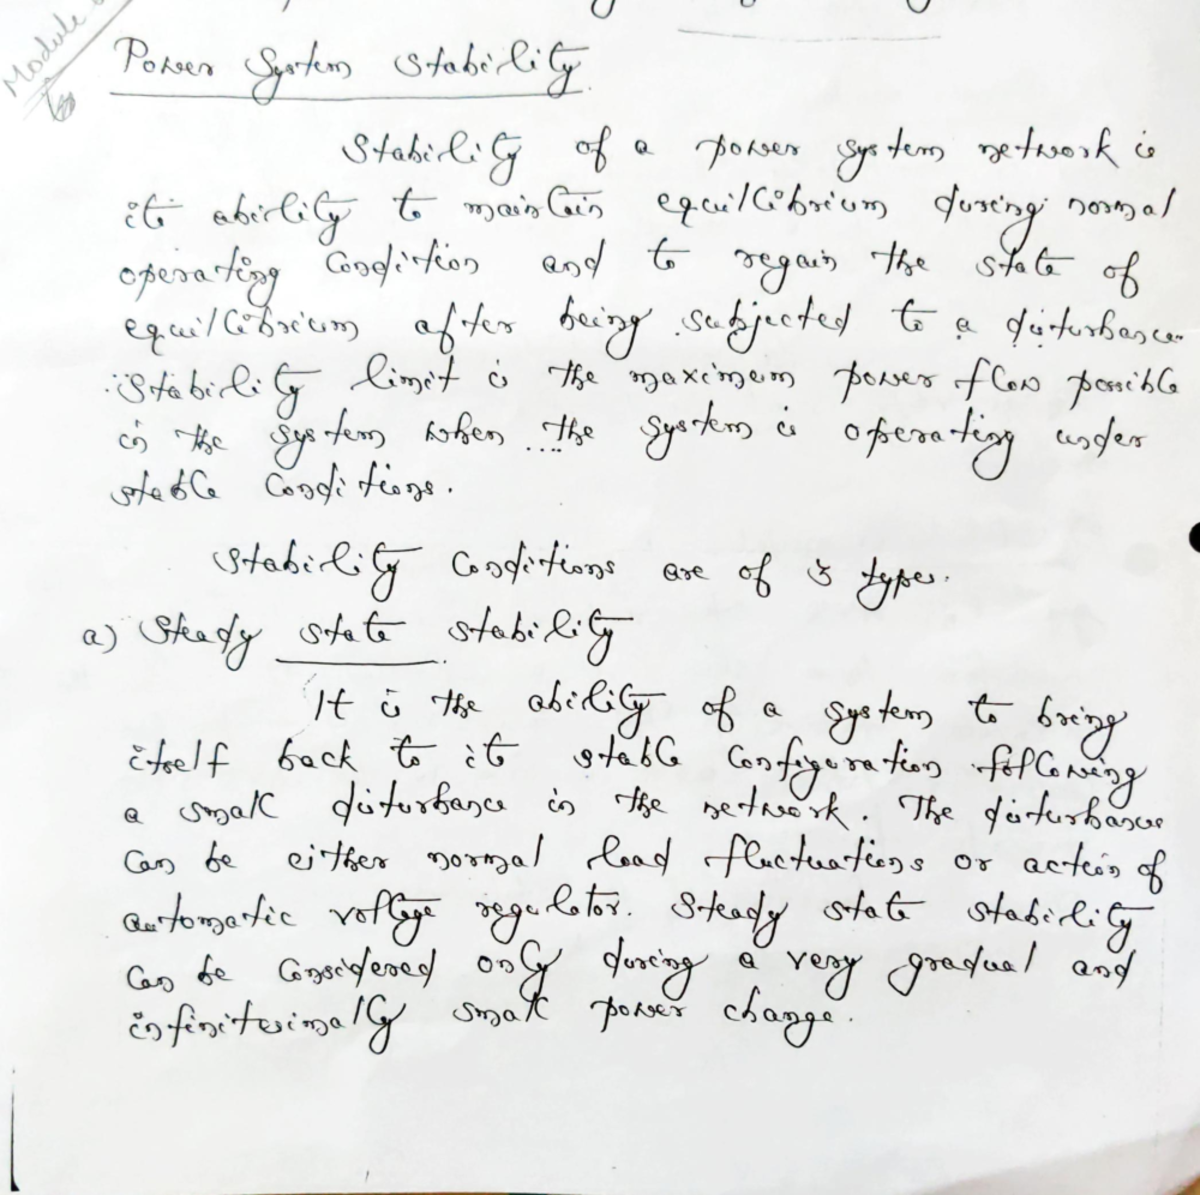 Module
Power System Stability
Stability of a power system network is
its ability to maintain equilibrium during normal
operating condition and to regain the state of
equilibrium after being subjected to a disturbance.
Stability limit is the maximum power flow possible
in the system when the system is operating under
stable conditions.
Stability conditions are of 3 types.
a) Steady state stability
It is the ability of a system to bring
itself back to its stable configuration following
a small disturbance in the network. The disturbance
can be either normal load fluctuations or action of
automatic voltage regulator. Steady state stability
can be considered only during a very gradual and
infinitesimally small power change.